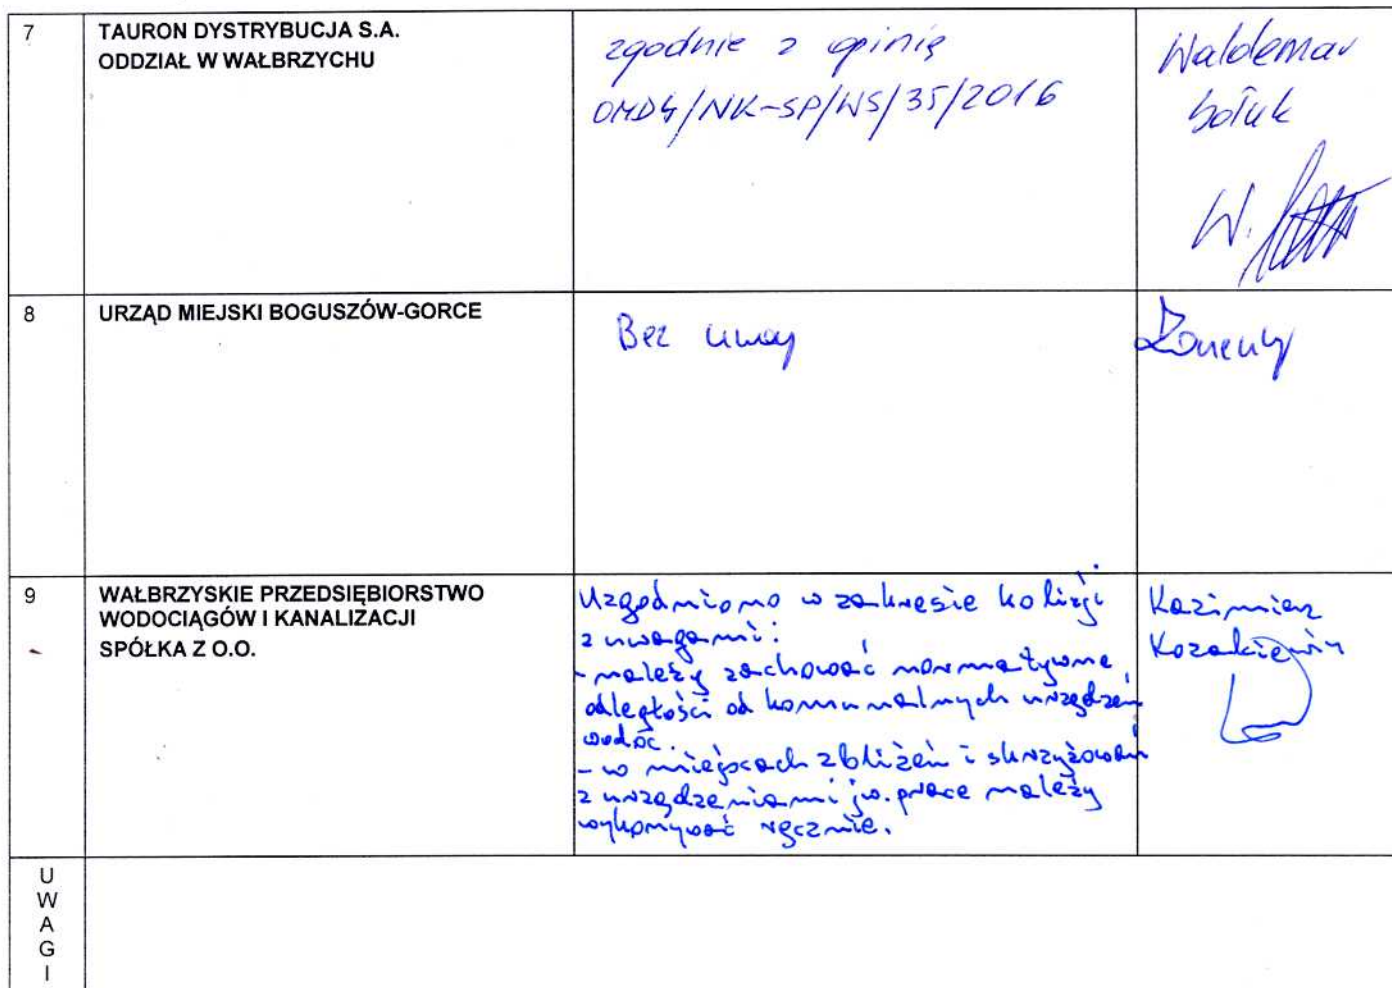 7
TAURON DYSTRYBUCJA S.A.
ODDZIAŁ W WAŁBRZYCHU
zgodnie z opinią
OMD4/NK-SP/WS/35/2016
Waldemar
W.
8
URZĄD MIEJSKI BOGUSZÓW-GORCE
Bez uwag
9
WAŁBRZYSKIE PRZEDSIĘBIORSTWO
WODOCIĄGÓW I KANALIZACJI
SPÓŁKA Z O.O.
Uzgodniono w zakresie kolizji
z uwagami:
- należy zachować normatywne
odległości od komunalnych urządzeń
wodoc.
- w miejscach zbliżeń i skrzyżowań
z urządzeniami jw. prace należy
wykonywać ręcznie.
Kazimierz
Kozakiewicz
U
W
A
G
I